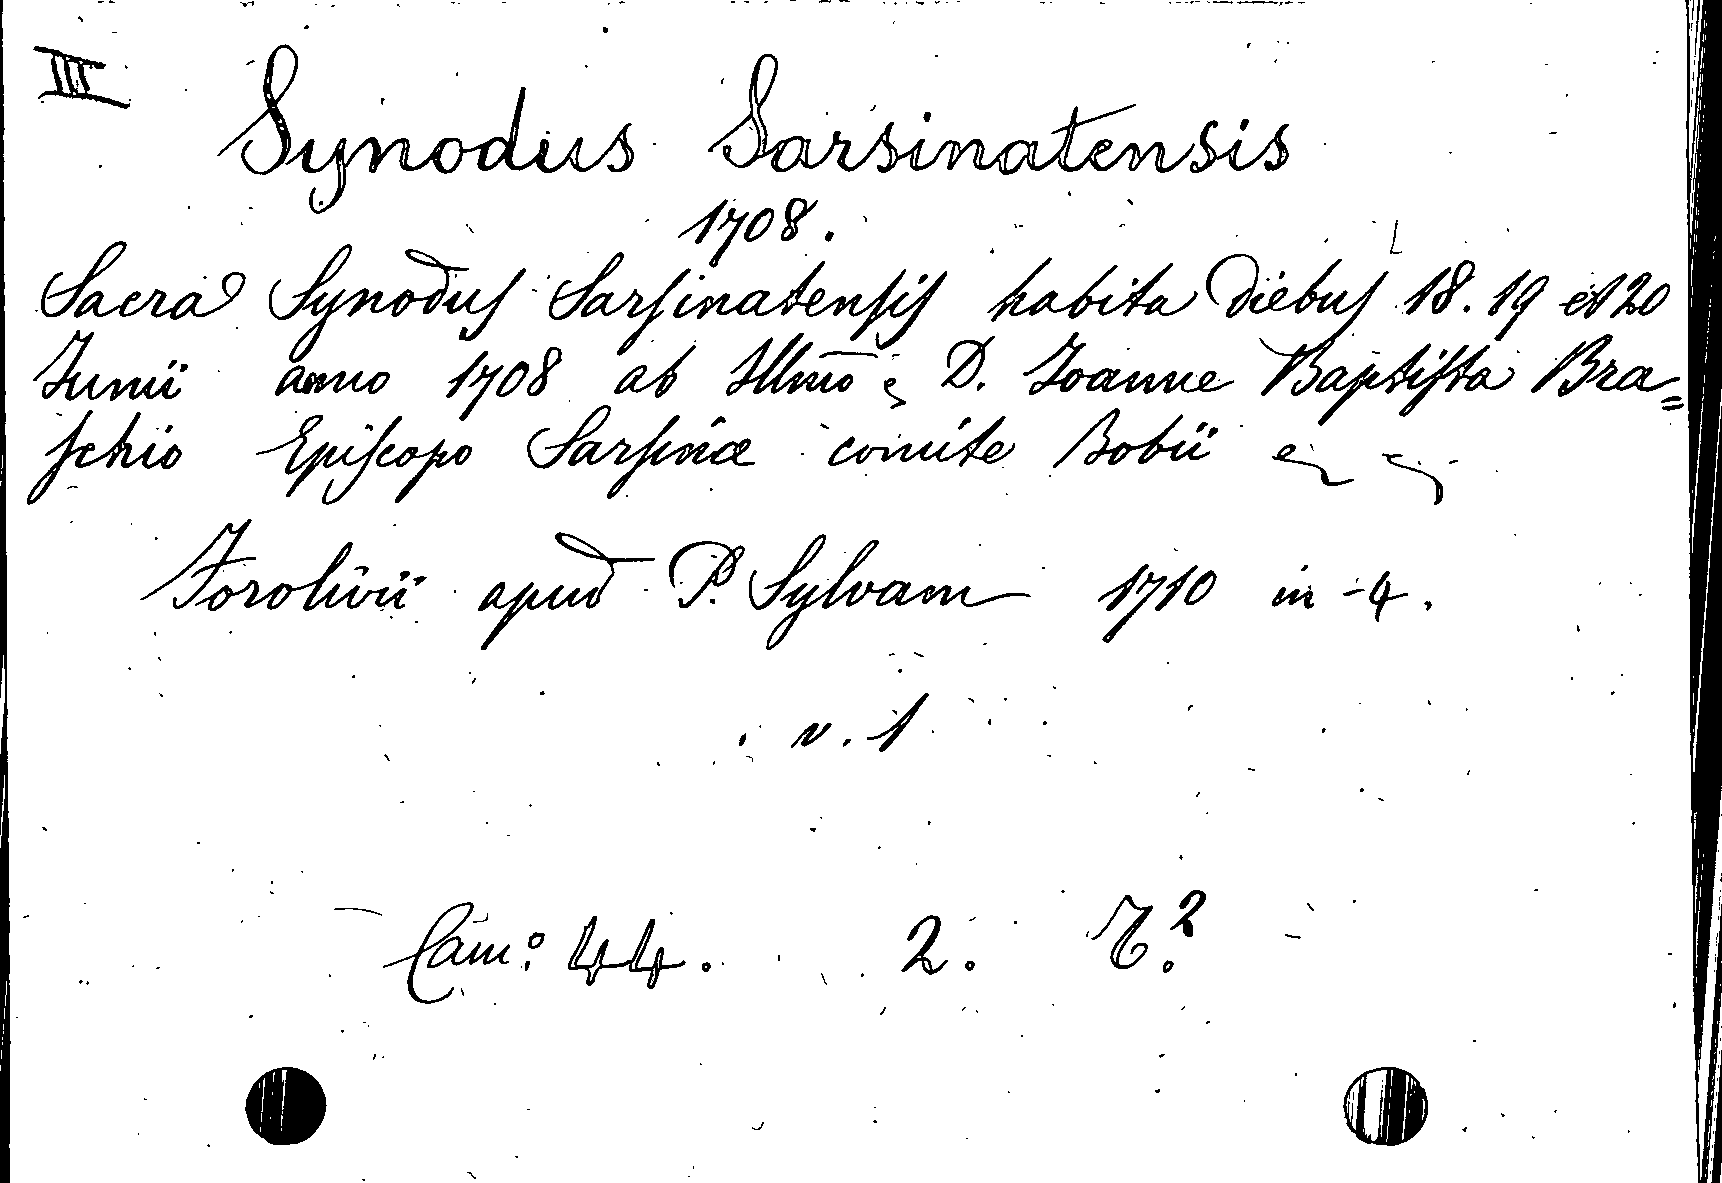 III
Synodus Sarsinatensis
1708.
Sacra Synoduſ Sarſinatenſiſ habita diebuſ 18. 19 et 20
Junii anno 1708 ab Illmo D. Joanne Baptiſta Bra=
ſchio Epiſcopo Sarſinæ comite Bobii
Forolivii apud P. Sylvam 1710 in -4.
v. 1
Cam:º 44. 2.